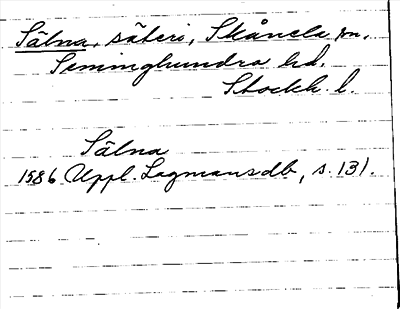 Sälna, säteri, Skånela sn,
Seminghundra hd.
Stockh. l.
Sälna
1586 Uppl. Lagmansdb, s. 131.